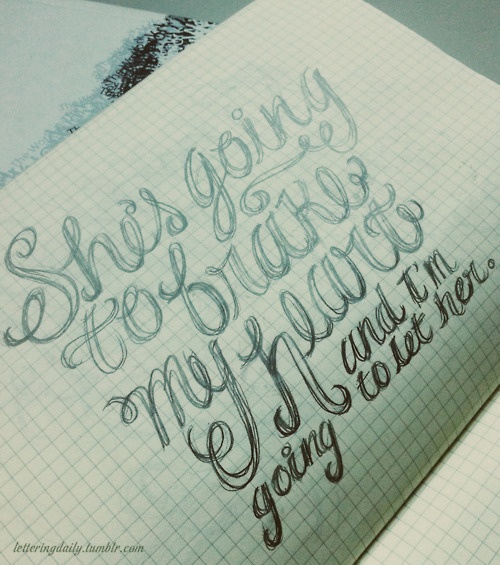 She's going
to brake
my heart
and I'm
going to let her.
letteringdaily.tumblr.com